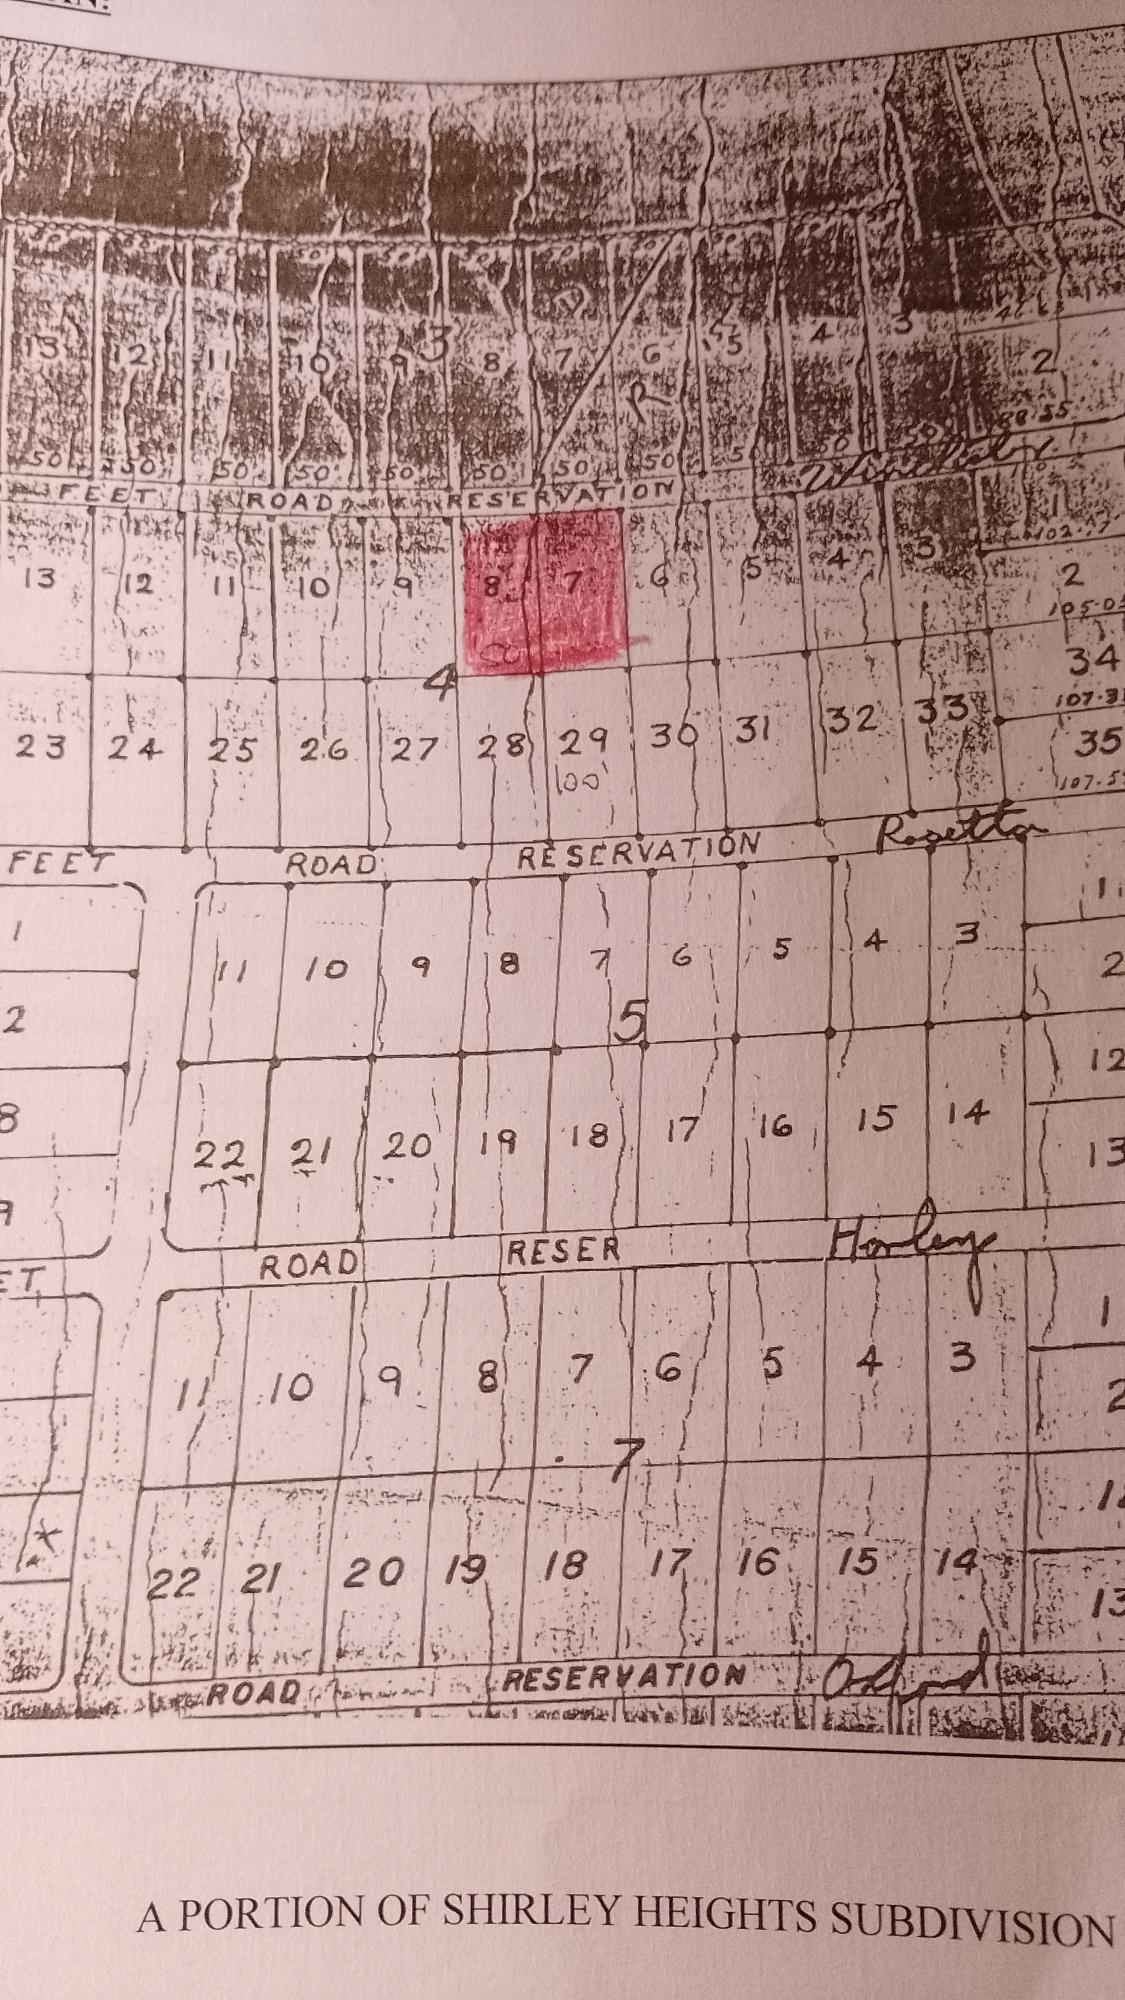 50' 50' 50' 50' 50' 50' 50'
13 12 11 10 9 3 8 7 6 5 4 3
R 2
88.55'
50' 50' 50' 50' 50' 50' 50' 50' 50' 50
FEET ROAD RESERVATION
1
102.17'
13 12 11 10 9 8 7 6 5 4 3 2
105.05
4 34
107.3
23 24 25 26 27 28 29 30 31 32 33 35
100
107.5
FEET ROAD RESERVATION Rosetta
1 11 10 9 8 7 6 5 4 3 1
2
2 5
12
8 22 21 20 19 18 17 16 15 14 13
9
ET ROAD RESER
1
11 10 9 8 7 6 5 4 3
2
7
22 21 20 19 18 17 16 15 14 13
ROAD RESERVATION
A PORTION OF SHIRLEY HEIGHTS SUBDIVISION